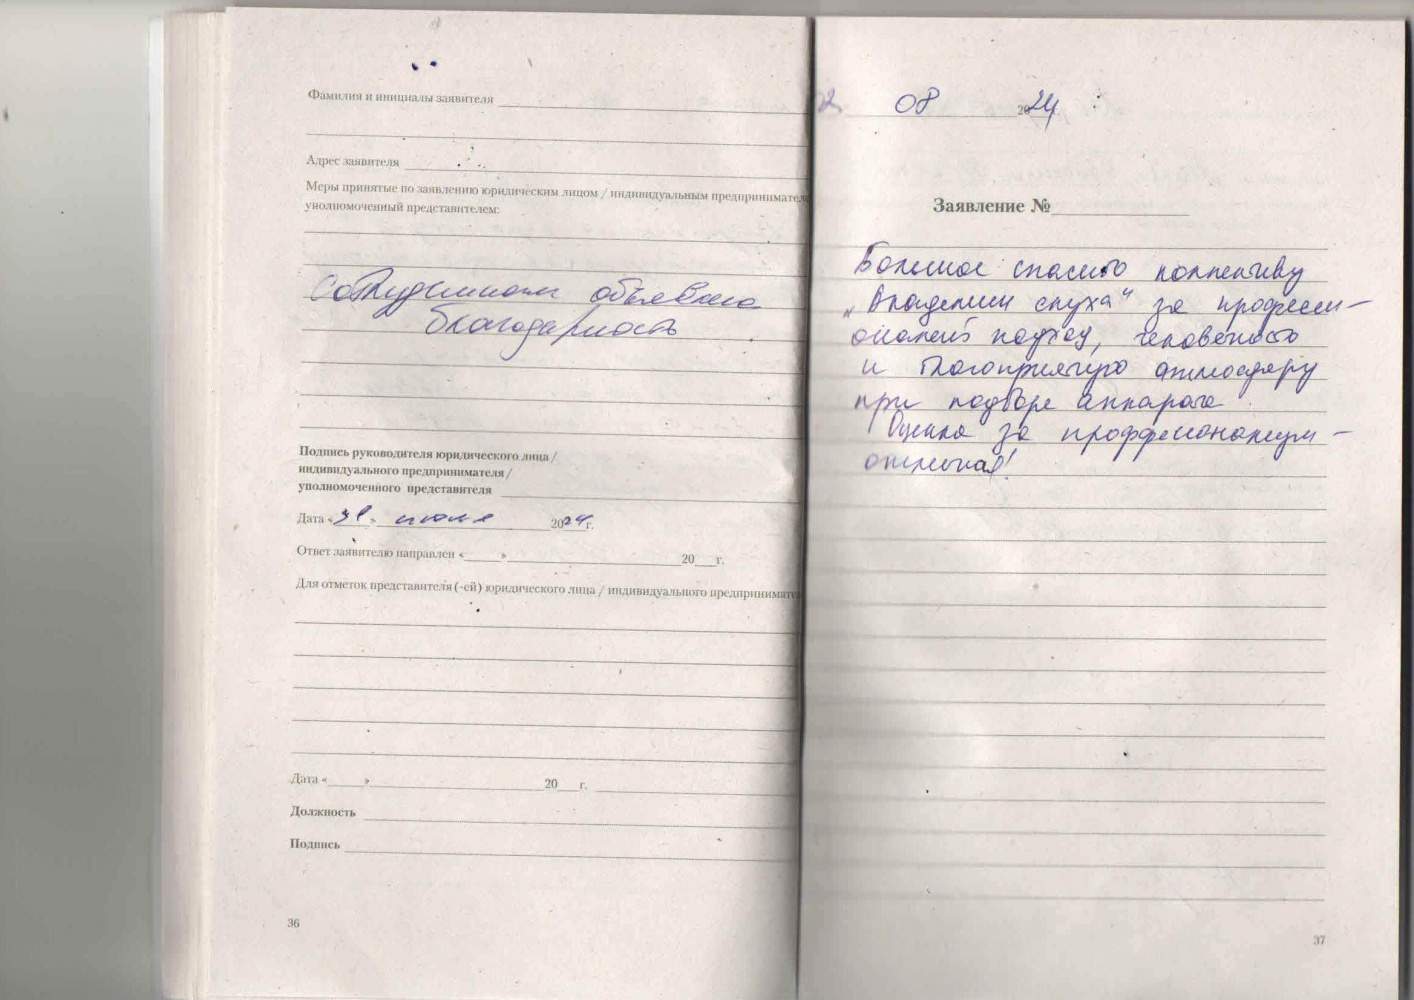 Фамилия и инициалы заявителя
Адрес заявителя
Меры принятые по заявлению юридическим лицом / индивидуальным предпринимател
уполномоченный представителем:
Сотрудникам объявлена
благодарность
Подпись руководителя юридического лица /
индивидуального предпринимателя /
уполномоченного представителя
Дата «31» июля 2024г.
Ответ заявителю направлен «   » 20 г.
Для отметок представителя (-ей) юридического лица / индивидуального предпринимате
Дата «   » 20 г.
Должность
Подпись
36
2 08 2024
Заявление №
Большое спасибо коллективу
„Академии слуха" за професси-
ональный подход, человечность
и благоприятную атмосферу
при подборе аппарата.
Оценка за проффесионализм -
отличная!
37